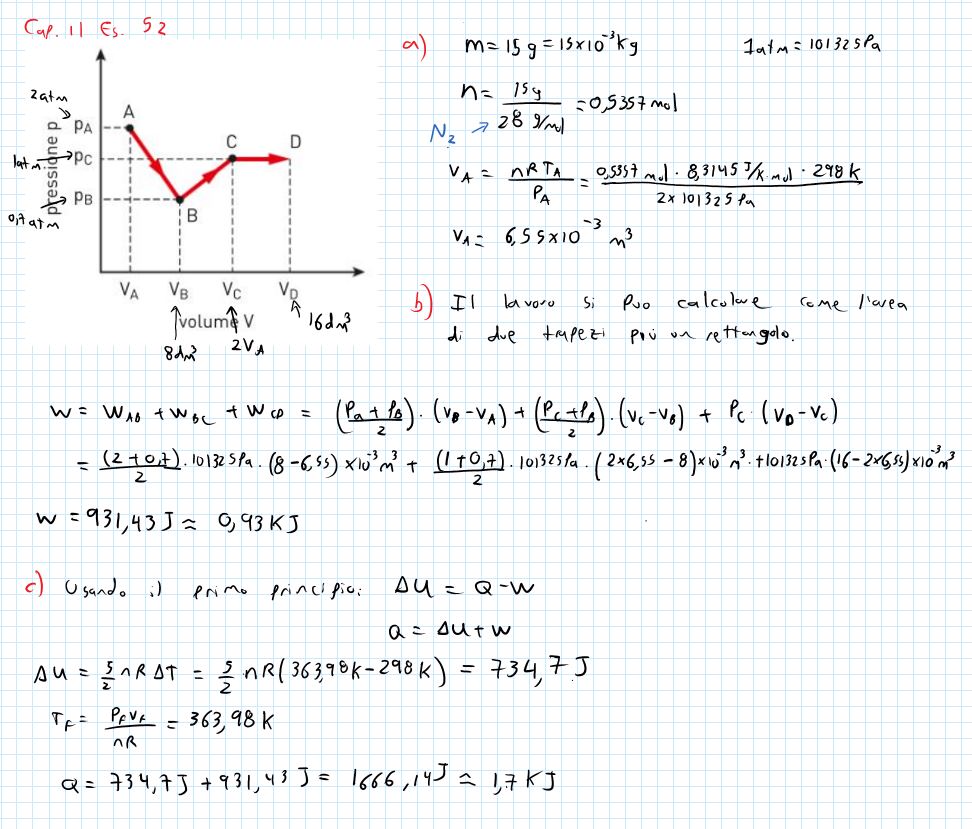 Cap. 11 Es. 52
2atm
1atm
0,7atm
pressione p
pA
pC
pB
A
B
C
D
VA VB VC VD
volume V
8dm³
2VA
16dm³
a) m = 15g = 15×10⁻³kg 1atm = 101325Pa
n = 15g / 28 g/mol = 0,5357 mol
N₂
VA = nRTA / PA = 0,5357 mol · 8,3145 J/K·mol · 298K / 2×101325 Pa
VA = 6,55×10⁻³ m³
b) Il lavoro si puo calcolare come l'area
di due trapezi più un rettangolo.
W = WAB + WBC + WCD = (PA + PB / 2) · (VB - VA) + (PC + PB / 2) · (VC - VB) + PC · (VD - VC)
= (2+0,7) / 2 · 101325Pa · (8 - 6,55) ×10⁻³m³ + (1+0,7) / 2 · 101325Pa · (2×6,55 - 8)×10⁻³m³ · +101325Pa·(16 - 2×6,55)×10⁻³m³
W = 931,43 J ≈ 0,93 KJ
c) Usando il primo principio: ΔU = Q - W
Q = ΔU + W
ΔU = 5/2 nR ΔT = 5/2 nR(363,98K - 298K) = 734,7 J
TF = PFVF / nR = 363,98 K
Q = 734,7J + 931,43 J = 1666,14J ≈ 1,7 KJ